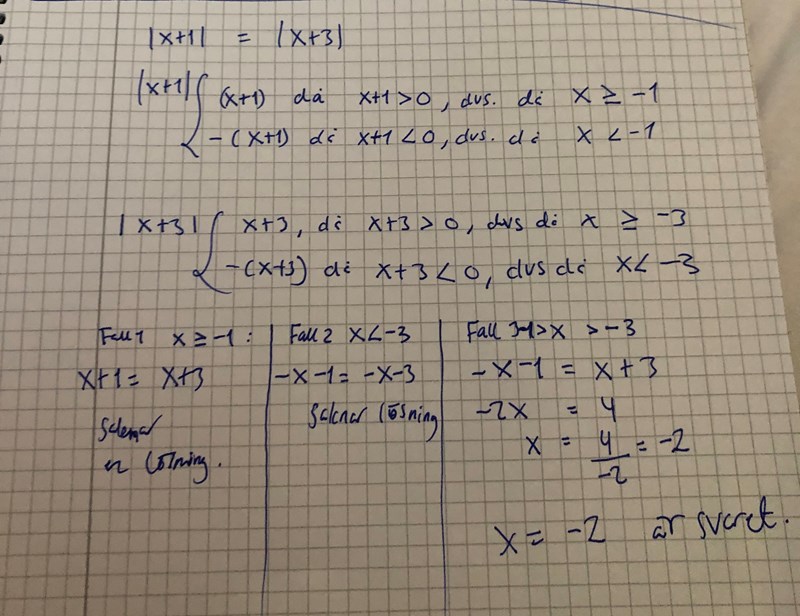 |x+1| = |x+3|
|x+1| { (x+1) då x+1>0, dvs. då x ≥ -1
-(x+1) då x+1<0, dvs. då x < -1
|x+3| { x+3, då x+3>0, dvs då x ≥ -3
-(x+3) då x+3<0, dvs då x< -3
Fall 1 x ≥ -1 :
x+1 = x+3
Saknar
en lösning.
Fall 2 x<-3
-x-1 = -x-3
Saknar lösning
Fall 3 -1>x >-3
-x-1 = x+3
-2x = 4
x = 4/-2 = -2
x = -2 är svaret.